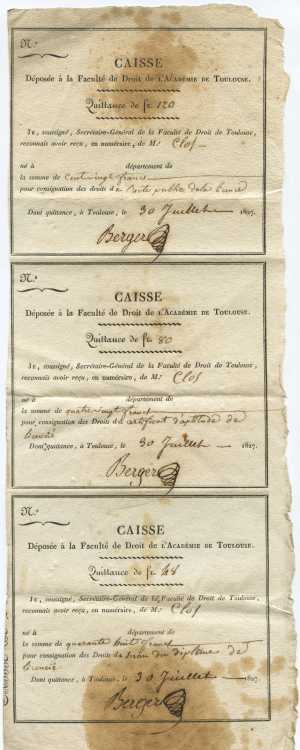 N.°
CAISSE
Déposée à la Faculté de Droit de L'ACADÉMIE DE TOULOUSE.
Quittance de fr. 120
JE, soussigné, Secrétaire-Général de la Faculté de Droit de Toulouse,
reconnais avoir reçu, en numéraire, de M.r Clos
né à département de
la somme de Cent vingt francs
pour consignation des droits de public de la Licence
Dont quittance, à Toulouse, le 30 Juillet 1827.
Berger
N.°
CAISSE
Déposée à la Faculté de Droit de L'ACADÉMIE DE TOULOUSE.
Quittance de fr. 80
JE, soussigné, Secrétaire-Général de la Faculté de Droit de Toulouse,
reconnais avoir reçu, en numéraire, de M.r Clos
né à département de
la somme de quatre vingt francs
pour consignation des Droits de certificat d'aptitude de
Licencié
Dont quittance, à Toulouse, le 30 Juillet 1827.
Berger
N.°
CAISSE
Déposée à la Faculté de Droit de L'ACADÉMIE DE TOULOUSE.
Quittance de fr. 48
JE, soussigné, Secrétaire-Général de la Faculté de Droit de Toulouse,
reconnais avoir reçu, en numéraire, de M.r Clos
né à département de
la somme de quarante huit francs
pour consignation des Droits de du diplome de
Licencié
Dont quittance, à Toulouse, le 30 Juillet 1827.
Berger